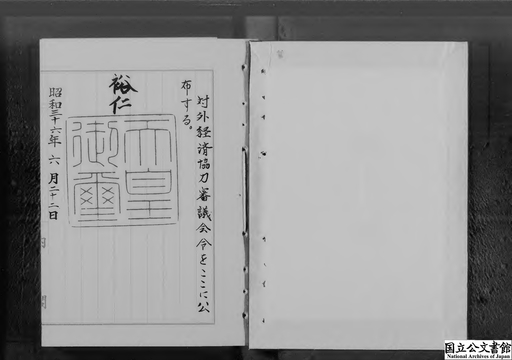 対外経済協力審議会令をここに公
布する。
裕仁
天皇
御璽
昭和三十六年 六 月二十二日
国立公文書館
National Archives of Japan